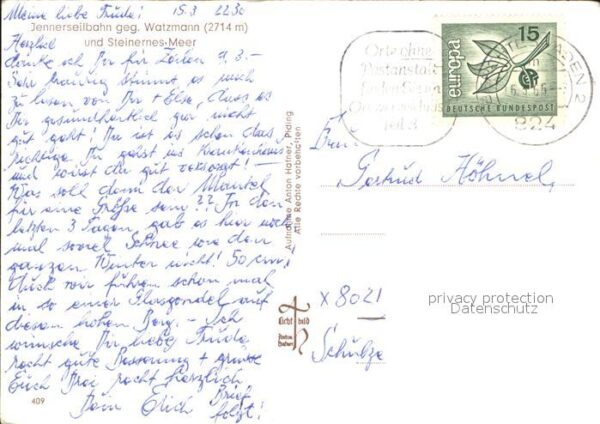 Meine liebe Trude! 15.3 22.30
Jennerseilbahn geg. Watzmann (2714 m)
und Steinernes-Meer
Herzlich
danke ich Dir für Zeilen 9.3.-
Sehr traurig stimmt es mich
zu lesen von Dir + Else, dass es
Dir gesundheitlich gar nicht
gut geht! Dir ist es schon das
richtige. Du gehst ins Krankenhaus
und wirst dir gut versorgt! -
Was soll denn der Mantel
für eine Größe sein?? In den
letzten 3 Tagen, gab es hier noch
mal soviel Schnee wie den
ganzen Winter nicht! 50 cm!
Auch wir fuhren schon mal
in so einer Glasgondel auf
diesen hohen Berg. - Ich
wünsche Dir liebe Trude
recht gute Besserung + grüsse
Euch Drei recht herzlich
Dein Erich Brief
folgt!
409
Aufnahme Anton Hafner, Piding
Alle Rechte vorbehalten
Licht bild
Anton
Hafner
Orte ohne
Postanstalt
824
europa
15
DEUTSCHE BUNDESPOST
Gertrud Höhnel,
x 8021
privacy protection
Datenschutz